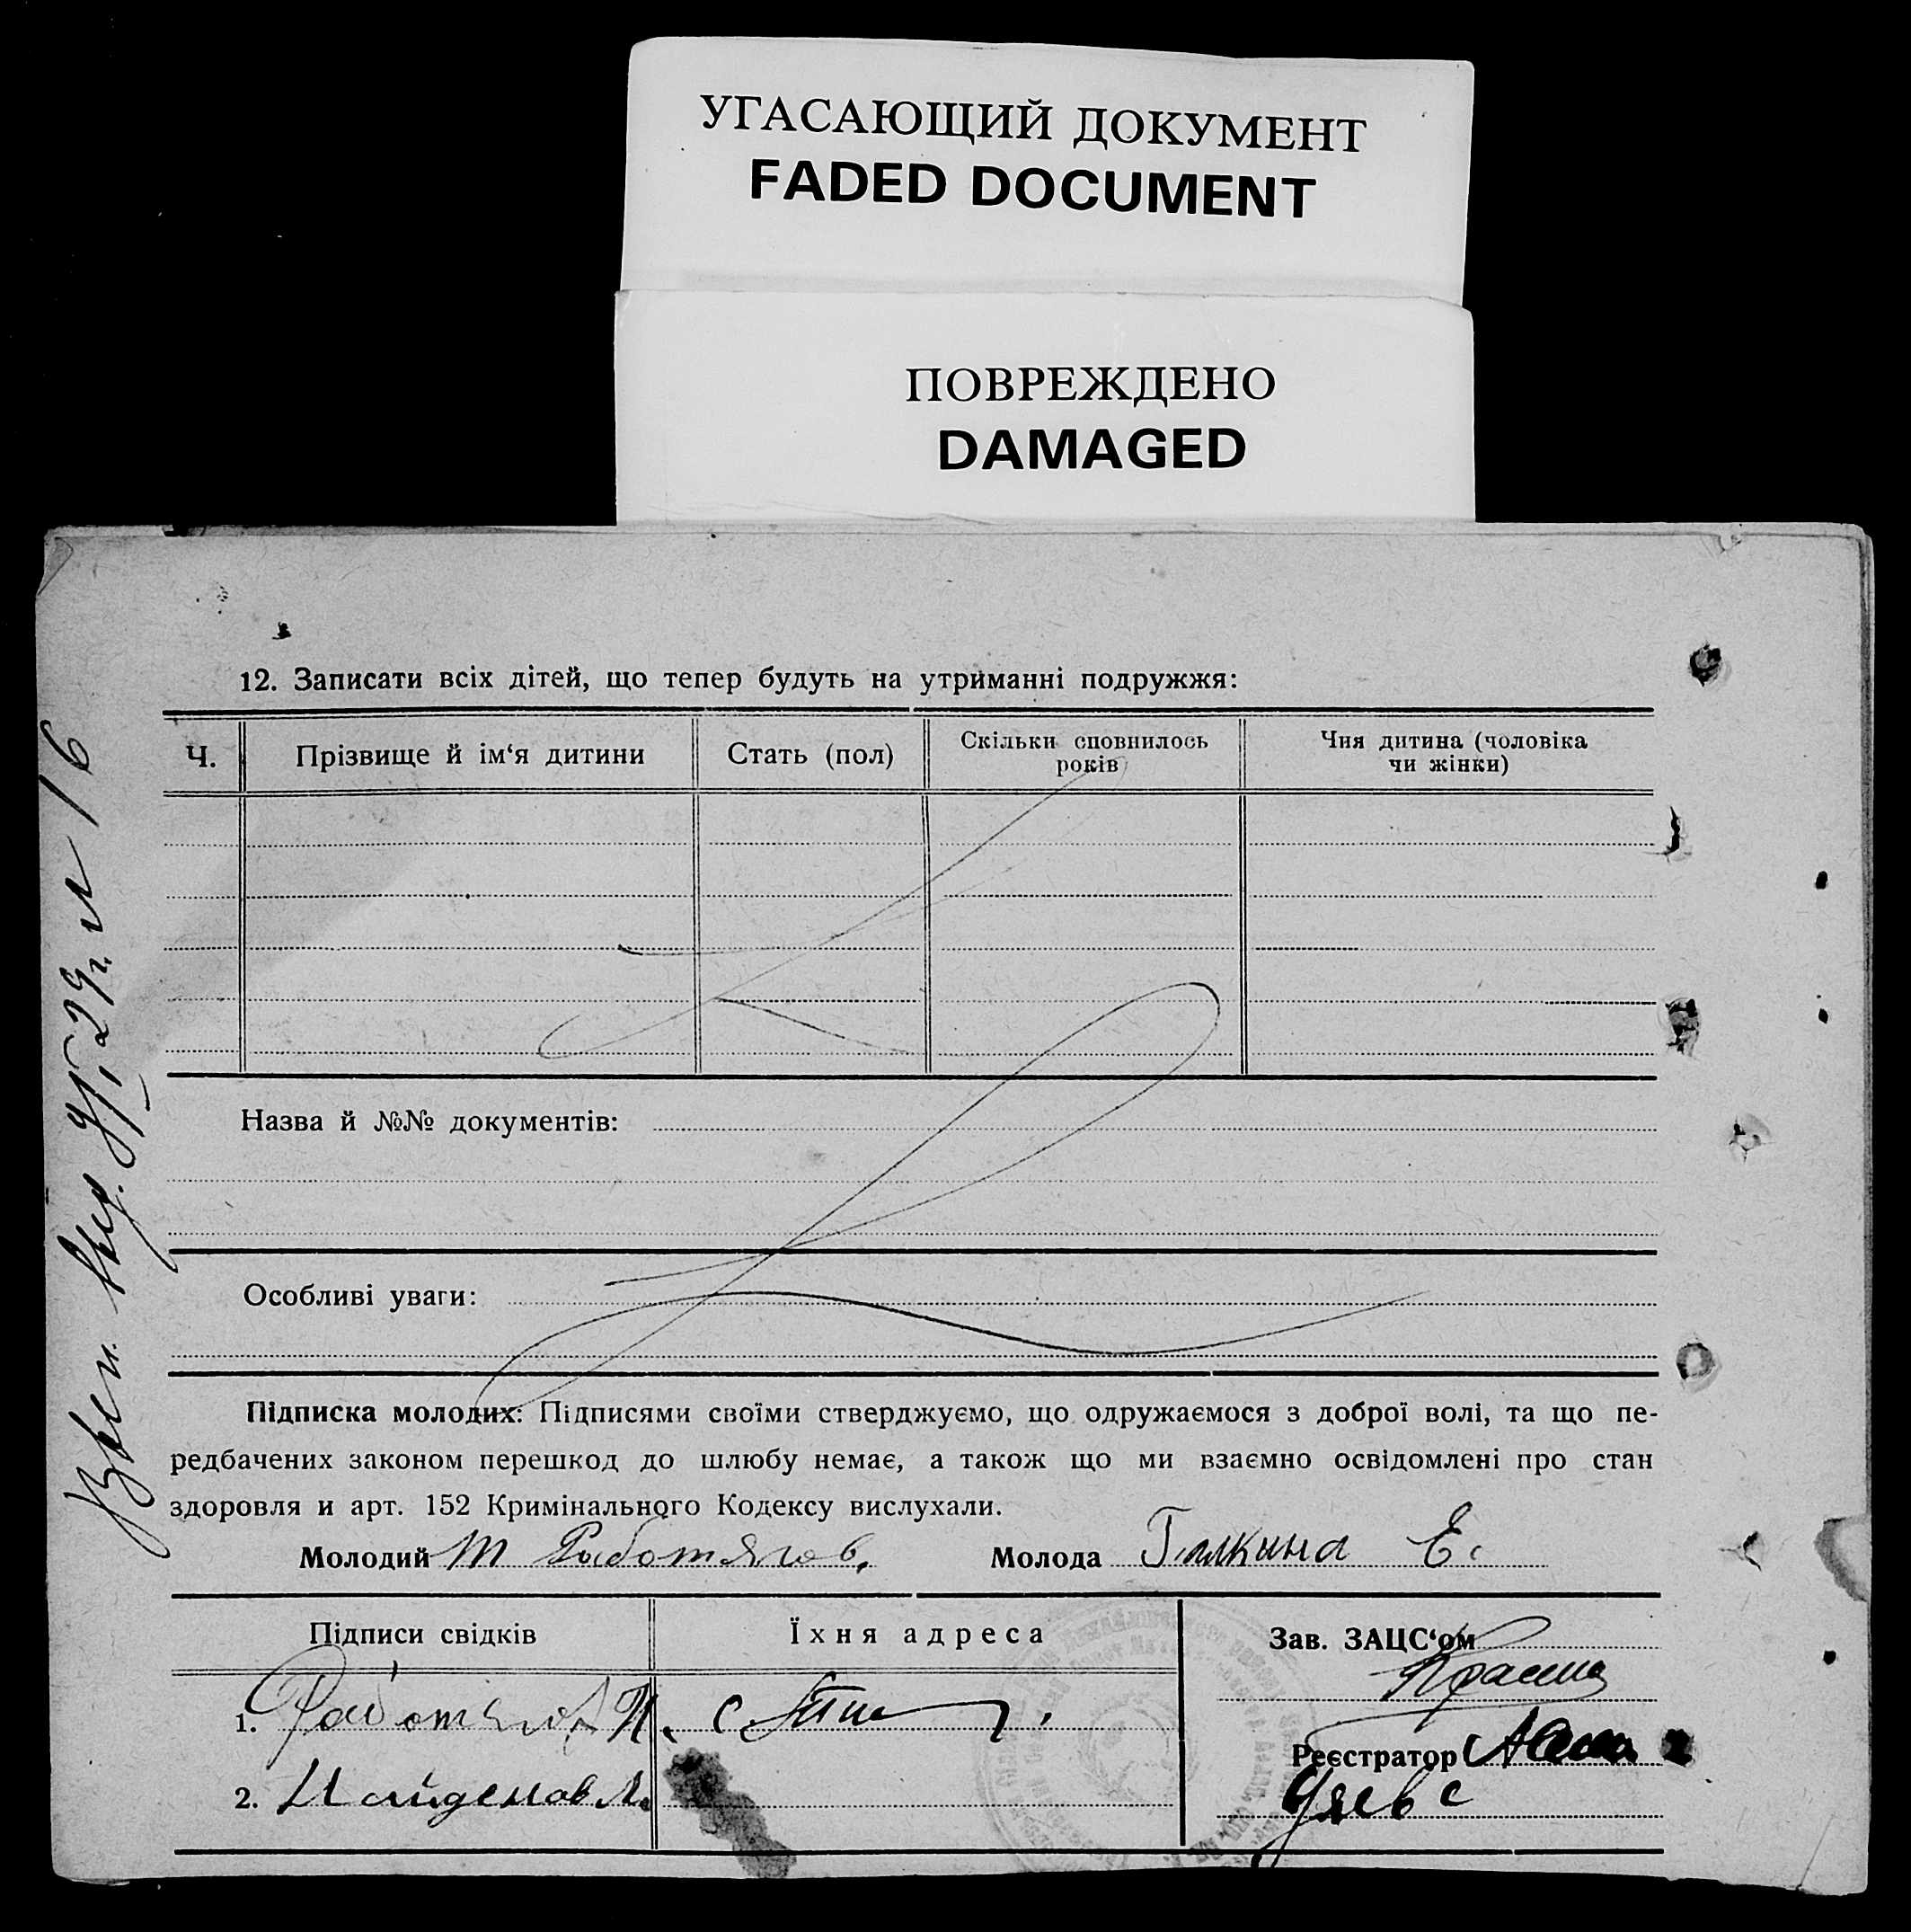 УГАСАЮЩИЙ ДОКУМЕНТ
FADED DOCUMENT
ПОВРЕЖДЕНО
DAMAGED
12. Записати всіх дітей, що тепер будуть на утриманні подружжя:
Ч. Прізвище й ім‘я дитини Стать (пол) Скільки сповнилось років Чия дитина (чоловіка чи жінки)
Назва й №№ документів:
Особливі уваги:
Підписка молодих: Підписями своїми стверджуємо, що одружаємося з доброї волі, та що пе-
редбачених законом перешкод до шлюбу немає, а також що ми взаємно освідомлені про стан
здоровля и арт. 152 Кримінального Кодексу вислухали.
Молодий Т Работягов. Молода Галкина Е.
Підписи свідків Їхня адреса Зав. ЗАЦС‘ом
1. Работягов И. с.
Реєстратор
2. Найденов